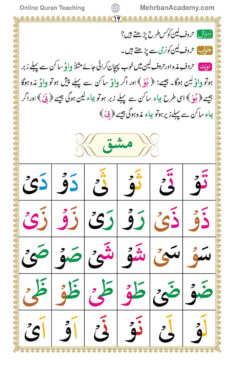 Online Quran Teaching MehrbanAcademy.com
۱۹
سوال حروف لین کو کس طرح پڑھتے ہیں؟
جواب حروف لین کو نرمی سے پڑھتے ہیں۔
حروف مدہ اور حروف لین میں خوب پہچان کرائی جائے مثلاً واؤ ساکن سے پہلے زبر
ہو تو واؤ لین ہوگا۔ جیسے: ﴿بَوْ﴾ اور اگر واؤ ساکن سے پہلے پیش ہو تو واؤ مدہ ہوگا
جیسے ﴿بُوْ﴾ اسی طرح یاء ساکن سے پہلے زبر ہو تو یاء لین ہوگی جیسے ﴿بَیْ﴾ اور اگر
یاء ساکن سے پہلے زیر ہو تو یاء مدہ ہوگی جیسے ﴿بِیْ﴾
مشق
تَوْ تَیْ ثَوْ ثَیْ دَوْ دَیْ
ذَوْ ذَیْ رَوْ رَیْ زَوْ زَیْ
سَوْ سَیْ شَوْ شَیْ صَوْ صَیْ
ضَوْ ضَیْ طَوْ طَیْ ظَوْ ظَیْ
لَوْ لَیْ نَوْ نَیْ اَوْ اَیْ